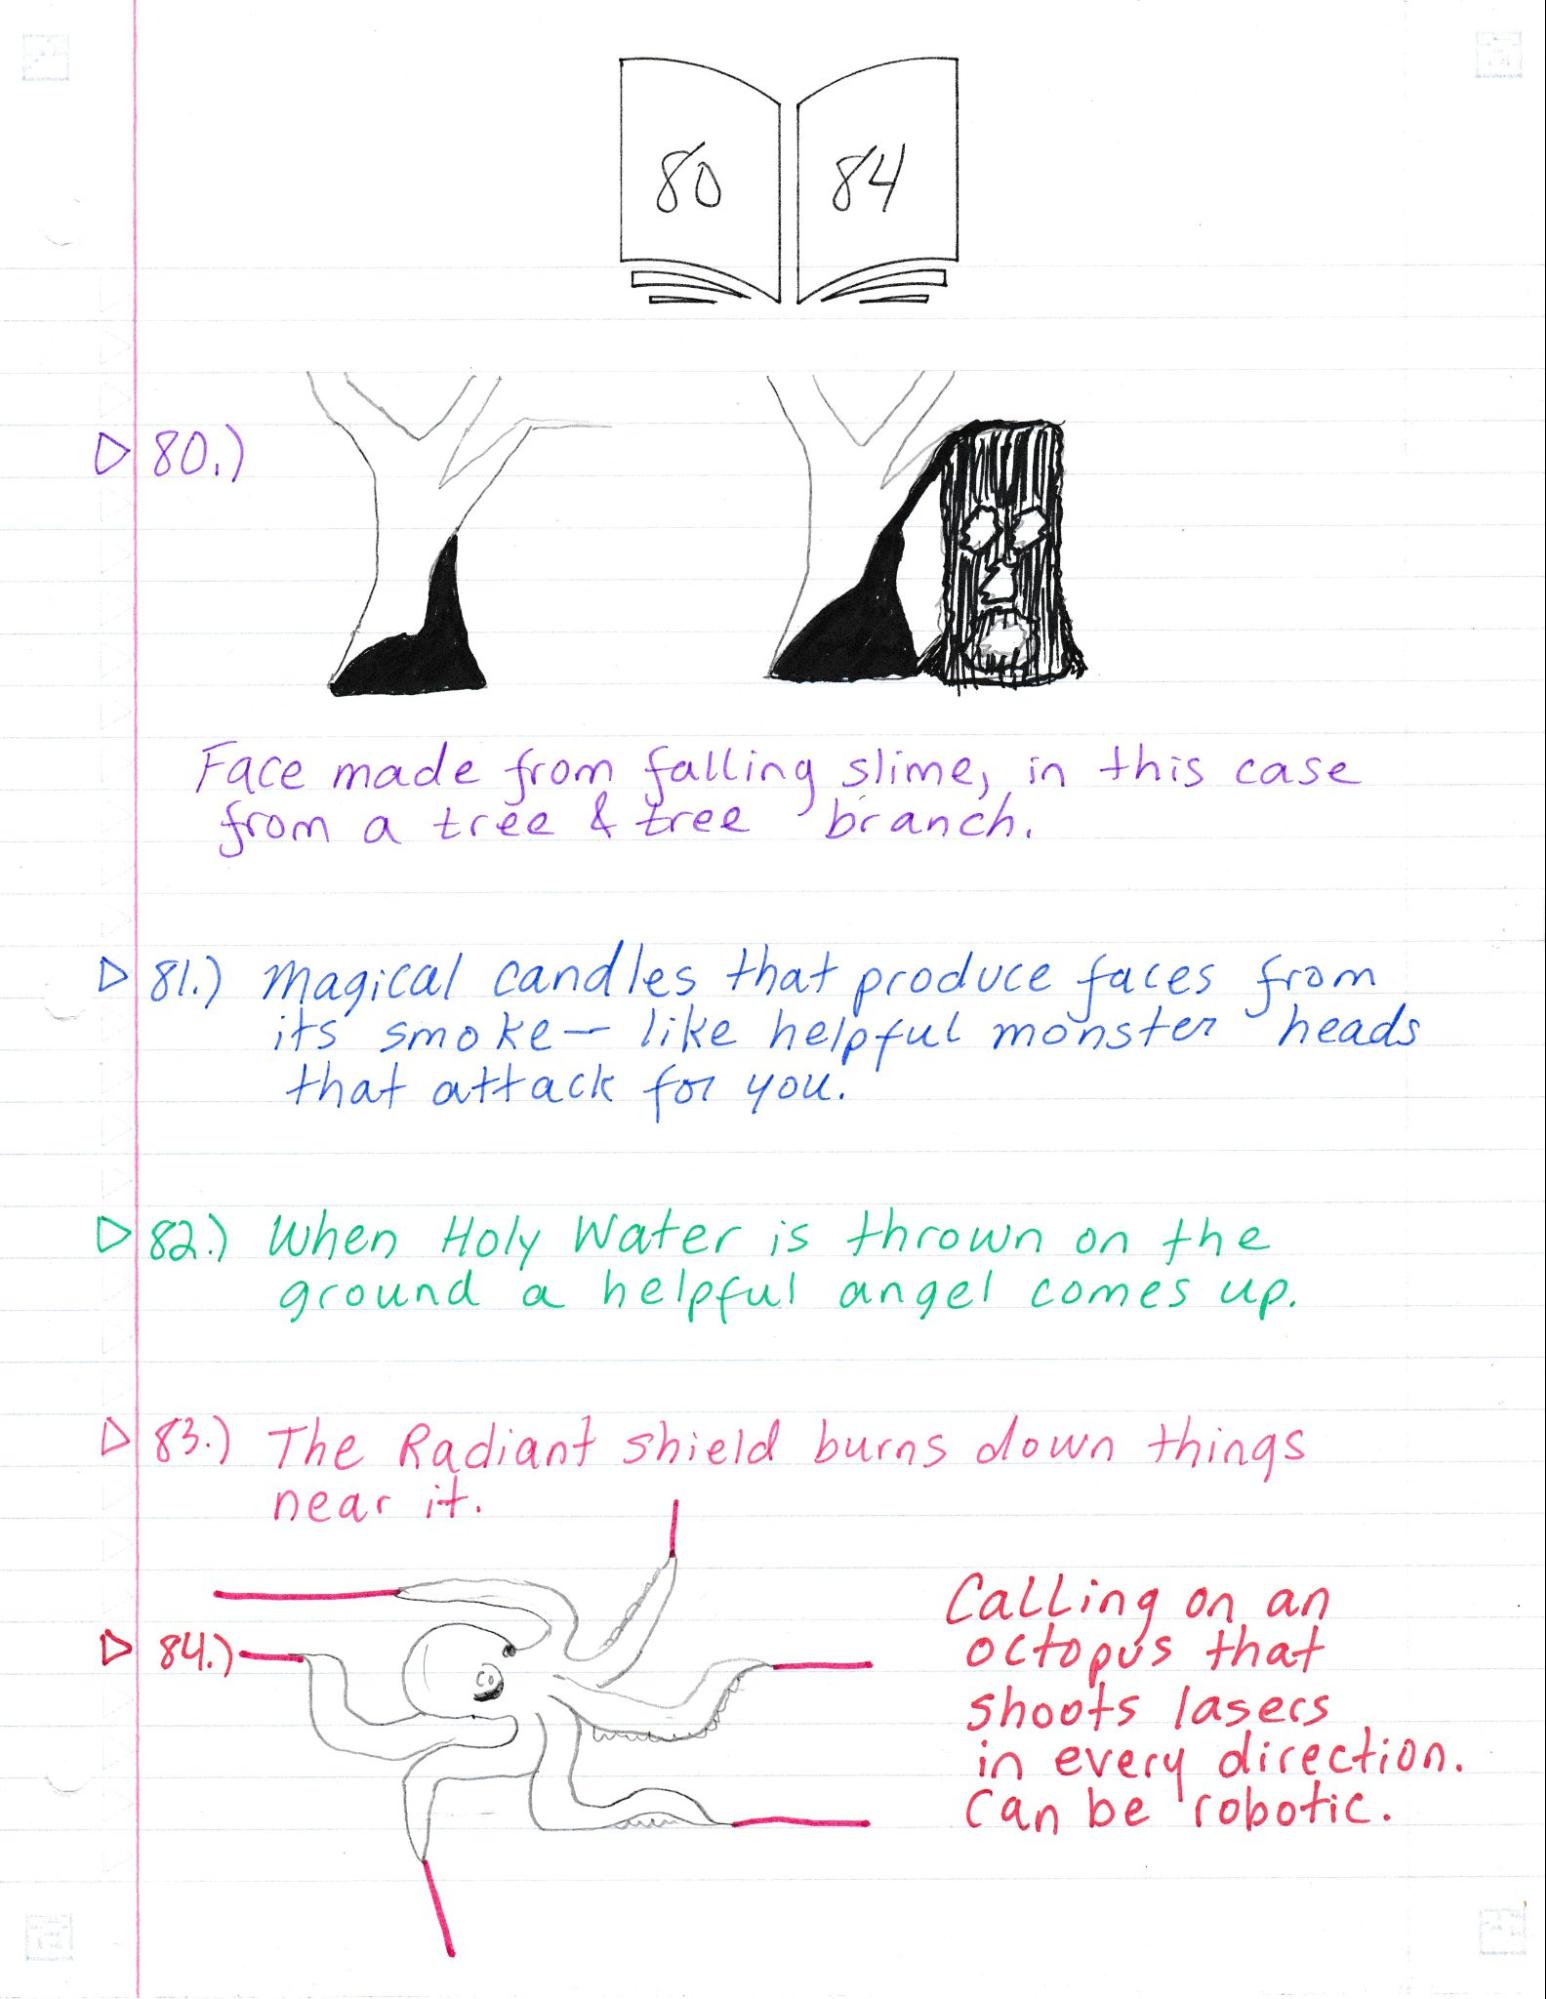 80 84
80.)
Face made from falling slime, in this case
from a tree & tree branch.
81.) Magical candles that produce faces from
its smoke— like helpful monster heads
that attack for you.
82.) When Holy Water is thrown on the
ground a helpful angel comes up.
83.) The Radiant shield burns down things
near it.
84.)
Calling on an
octopus that
shoots lasers
in every direction.
Can be robotic.